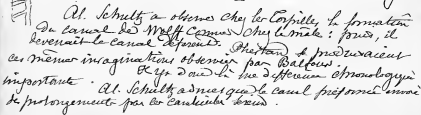 Al. Schultz a observé chez les Torpilles, la formation
du canal de Wolff comme chez le mâle: puis, il
devenait le canal déférent. se produiraient
ces mêmes invaginations observées par Balfour.
Il y a donc là une différence chronologique
importante.
Al. Schultz admet que le canal préformé envoie
de prolongements par ce